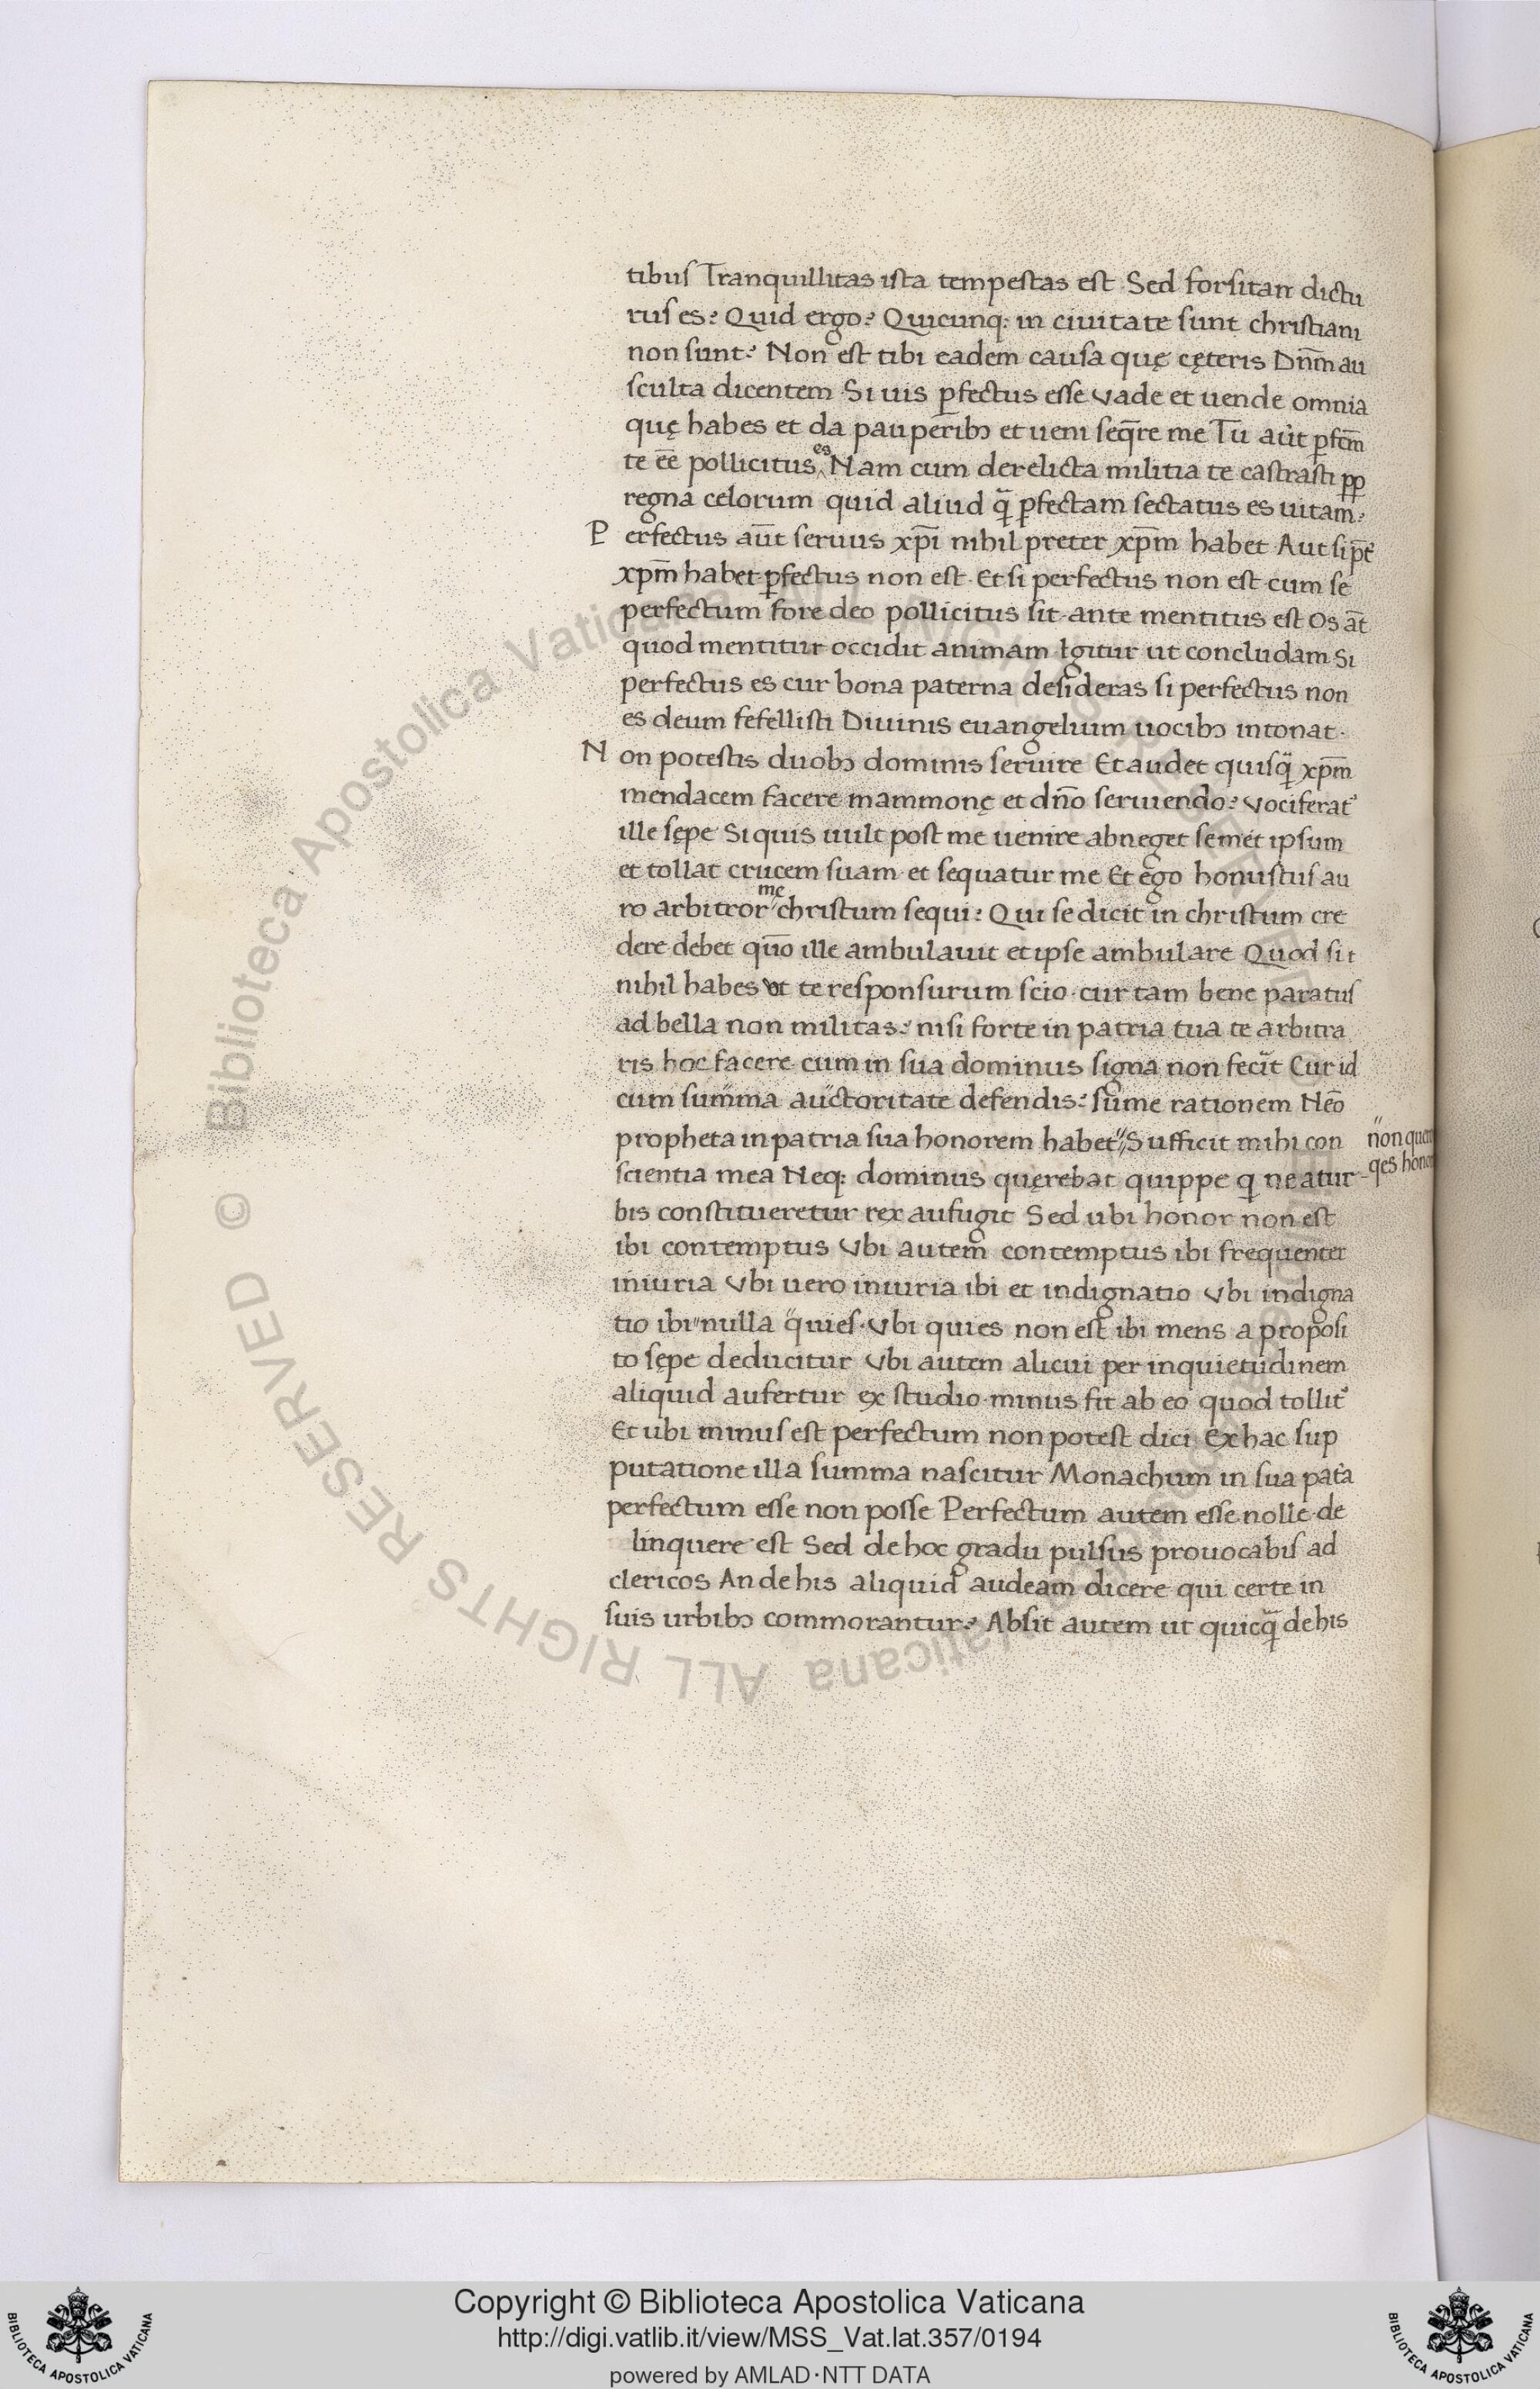 tibus Tranquillitas ista tempestas est Sed forsitan dictu
rus es? Quid ergo? Quicunq: in ciuitate sunt christiani
non sunt? Non est tibi eadem causa quę cęteris Dn̄m au
sculta dicentem Si uis ꝑfectus esse vade et uende omnia
quę habes et da pauperibꝫ et ueni seq̄re me Tu aut̄ ꝑfcm̄
te eē pollicitus es Nam cum derelicta militia te castrasti ꝓp
regna celorum quid aliud q̄ ꝑfectam sectatus es uitam?
Perfectus aūt seruus xp̄i nihil preter xp̄m habet Aut si p̄t
xp̄m habet ꝑfectus non est. Et si perfectus non est cum se
perfectum fore deo pollicitus sit ante mentitus est Os āt
quod mentitur occidit animam Igitur ut concludam Si
perfectus es cur bona paterna desideras si perfectus non
es deum fefellisti Diuinis euangelium uocibꝫ intonat.
Non potestis duobꝫ dominis seruire Et audet quisq̄ xp̄m
mendacem facere mammonę et dn̄o seruiendo? Vociferat᷒
ille sępe Si quis uult post me uenire abneget semet ipsum
et tollat crucem suam et sequatur me Et ego honustus au
ro arbitror me christum sequi? Qui se dicit in christum cre
dere debet quō ille ambulauit et ipse ambulare Quod si t
nihil habes ut te responsurum scio cur tam bene paratus
ad bella non militas? nisi forte in patria tua te arbitra
ris hoc facere cum in sua dominus signa non fecīt Cur id
cum summa auctoritate defendis? sume rationem Nēo
propheta in patria sua honorem habet Sufficit mihi con
non quero
scientia mea Neq: dominus quęrebat quippe q̄ ne a tur
qes honor
bis constitueretur rex aufugit Sed ubi honor non est
ibi contemptus Vbi autem contemptus ibi frequenter
iniuria Vbi uero iniuria ibi et indignatio Vbi indigna
tio ibi nulla quies. Vbi quies non est ibi mens a proposi
to sępe deducitur Vbi autem alicui per inquietudinem
aliquid aufertur ex studio minus fit ab eo quod tollit᷒
Et ubi minus est perfectum non potest dici Ex hac sup
putatione illa summa nascitur Monachum in sua pat̄a
perfectum esse non posse Perfectum autem esse nolle de
linquere est Sed de hoc gradu pulsus prouocabis ad
clericos An de his aliquid audeam dicere qui certe in
suis urbibꝫ commorantur? Absit autem ut quicq̄ de his
© Biblioteca Apostolica Vaticana ALL RIGHTS RESERVED
Copyright © Biblioteca Apostolica Vaticana
http://digi.vatlib.it/view/MSS_Vat.lat.357/0194
powered by AMLAD·NTT DATA
BIBLIOTECA APOSTOLICA VATICANA
BIBLIOTECA APOSTOLICA VATICANA